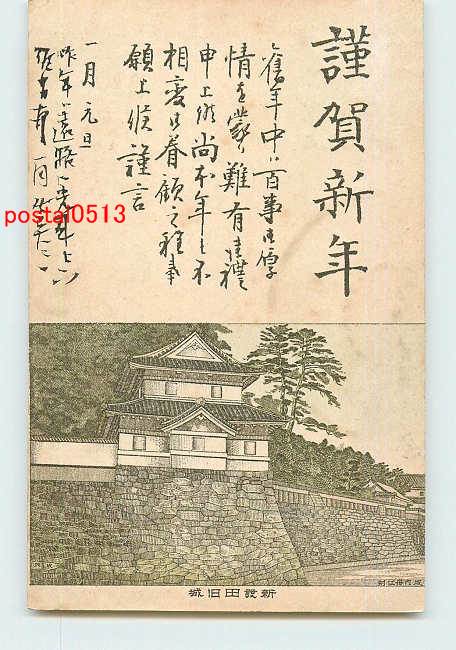 謹賀新年
舊年中ハ百事御厚
情を蒙り難有御禮
申上候尚本年も不
相変御眷顧之程奉
願上候謹言
一月元旦
昨年ハ遠路
新發田旧城
postal0513